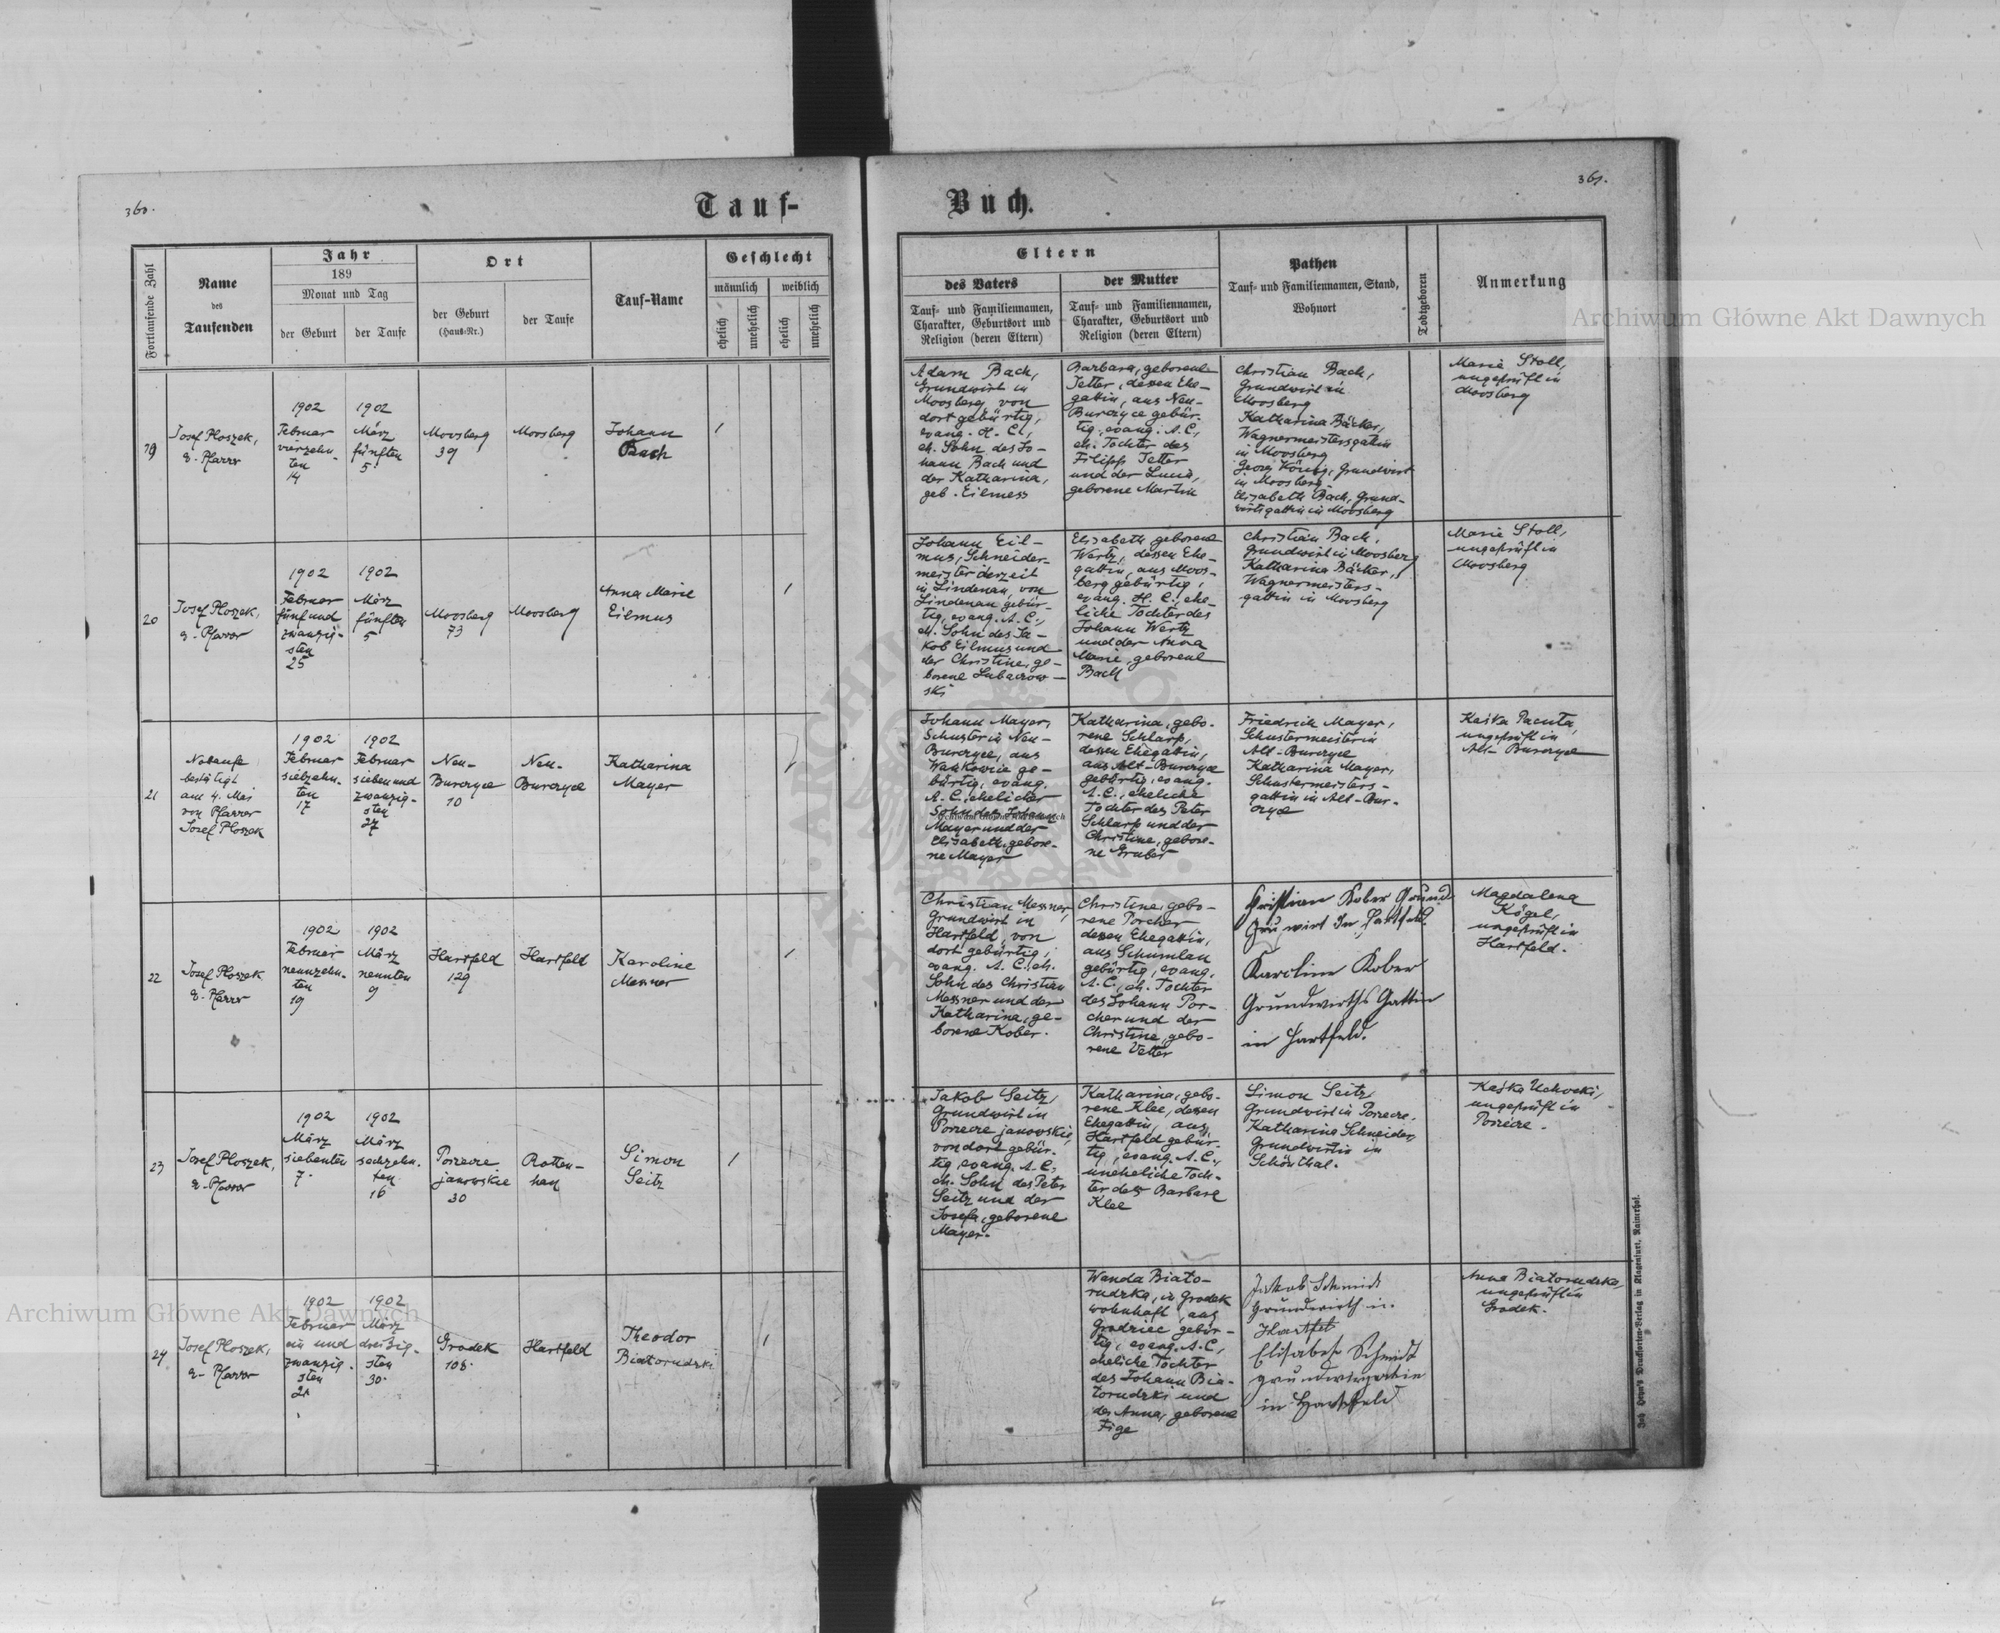 360.
Tauf-
Buch.
361.
Fortlaufende Zahl
Name
des
Taufenden
Jahr
189
Monat und Tag
der Geburt
der Taufe
Ort
der Geburt
(Haus-Nr.)
der Taufe
Tauf-Name
Geschlecht
männlich
weiblich
ehelich
unehelich
ehelich
unehelich
Eltern
des Vaters
Tauf- und Familiennamen,
Charakter, Geburtsort und
Religion (deren Eltern)
der Mutter
Tauf- und Familiennamen,
Charakter, Geburtsort und
Religion (deren Eltern)
Pathen
Tauf- und Familiennamen, Stand,
Wohnort
Todtgeboren
Anmerkung
19
Josef Ploszek,
e. Pfarrer
1902
Februar
vierzehn-
ten
14
1902
März
fünften
5
Moosberg
39
Moosberg
Johann
Bach
/
Adam Bach,
Grundwirt in
Moosberg, von
dort gebürtig,
evang. H. C.,
eh. Sohn des Jo-
hann Bach und
der Katharina,
geb. Eilmess
Barbara, geborene
Jetter, dessen Ehe-
gattin, aus Neu-
Burczyce gebür-
tig, evang. A. C.,
eh. Tochter des
Filipp Jetter
und der
geborene Martin
Christian Bach,
Grundwirt in
Moosberg
Katharina Bäcker,
Wagnermeistersgattin
in Moosberg
Georg König, Grundwirt
in Moosberg-
Elisabeth Bach, Grund-
wirtsgattin in Moosberg
Marie Stoll,
ungeprüft in
Moosberg
20
Josef Ploszek,
e. Pfarrer
1902
Februar
fünf und
zwanzig-
sten
25
1902
März
fünften
5
Moosberg
73
Moosberg
Anna Marie
Eilmus
/
Johann Eil-
mus, Schneider-
meister derzeit
in Lindenau, von
Lindenau gebür-
tig, evang. A. C.,
eh. Sohn des Ja-
kob Eilmus und
der Christine, ge-
borene Lubaczow-
ski
Elisabeth geborene
Wertz, dessen Ehe-
gattin, aus Moos-
berg gebürtig,
evang. H. C., ehe-
liche Tochter des
Johann Wertz
und der Anna
Marie, geborene
Bach
Christian Bach,
Grundwirt in Moosberg
Katharina Bäcker,
Wagnermeisters-
gattin in Moosberg
Marie Stoll,
ungeprüft in
Moosberg
21
Notaufe
bestätigt
am 4. Mai
von Pfarrer
Josef Ploszek
1902
Februar
siebzehn-
ten
17
1902
Februar
sieben und
zwanzig-
sten
27
Neu-
Burczyce
10
Neu-
Burczyce
Katharina
Mayer
/
Johann Mayer,
Schuster in Neu-
Burczyce, aus
Wankowice ge-
bürtig, evang.
A. C., ehelicher
Sohn des Johann
Mayer und der
Elisabeth, gebore-
ne Mayer
Katharina, gebo-
rene Schlarp,
dessen Ehegattin,
aus Alt-Burczyce
gebürtig, evang.
A. C., eheliche
Tochter des Peter
Schlarp und der
Christine, gebore-
ne Gruber
Friedrich Mayer,
Schustermeister in
Alt-Burczyce
Katharina Mayer,
Schustermeisters-
gattin in Alt-Bur-
czyce
Kaśka Pacuta,
ungeprüft in
Alt-Burczyce
22
Josef Ploszek
e. Pfarrer
1902
Februar
neunzehn-
ten
19
1902
März
neunten
9
Hartfeld
129
Hartfeld
Karoline
Messner
/
Christian Messner,
Grundwirt in
Hartfeld, von
dort gebürtig,
evang. A. C., eh.
Sohn des Christian
Messner und der
Katharina, ge-
borene Kober.
Christine, gebo-
rene Porcher
dessen Ehegattin,
aus Schumlau
gebürtig, evang.
A. C., eh. Tochter
des Johann Por-
cher und der
Christine, gebo-
rene Vetter
Christian Kober Grund
wirt in Hartfeld.
Karoline Kober
Grundwirths Gattin
in Hartfeld.
Magdalena
Kögel,
ungeprüft in
Hartfeld.
23
Josef Ploszek,
e. Pfarrer
1902
März
siebenten
7.
1902
März
sechzehn-
ten
16
Porzecze
janowskie
30
Rotten-
han
Simon
Seitz
/
Jakob Seitz,
Grundwirt in
Porzecze janowskie,
von dort gebür-
tig, evang. A. C.,
eh. Sohn des Peter
Seitz und der
Josefa, geborene
Mayer.
Katharina, gebo-
rene Klee, dessen
Ehegattin, aus
Hartfeld gebür-
tig, evang. A. C.,
uneheliche Toch-
ter der Barbara
Klee
Simon Seitz,
Grundwirt in Porzecze.
Katharina Schneider,
Grundwirtin in
Schönthal.
Kaśka
ungeprüft in
Porzecze.
24
Josef Ploszek,
e. Pfarrer
1902
Februar
ein und
zwanzig-
sten
21
1902
März
dreißig-
sten
30.
Grodek
108.
Hartfeld
Theodor
Białorudzki
/
Wanda Biało-
rudzka, in Grodek
wohnhaft, aus
Grodziec gebür-
tig, evang. A. C.,
eheliche Tochter
des Johann Bia-
łorudzki und
der Anna, geborene
Fige
Jakob Schmidt
Grundwirth in
Hartfel
Elisabet Schmidt
in Hartfeld
Anna Białorudzka,
ungeprüft in
Grodek.
Joh. Heyn's Drucksorten-Verlag in Klagenfurt, Rainerhof.
Archiwum Główne Akt Dawnych
Archiwum Główne Akt Dawnych
Archiwum Główne Akt Dawnych